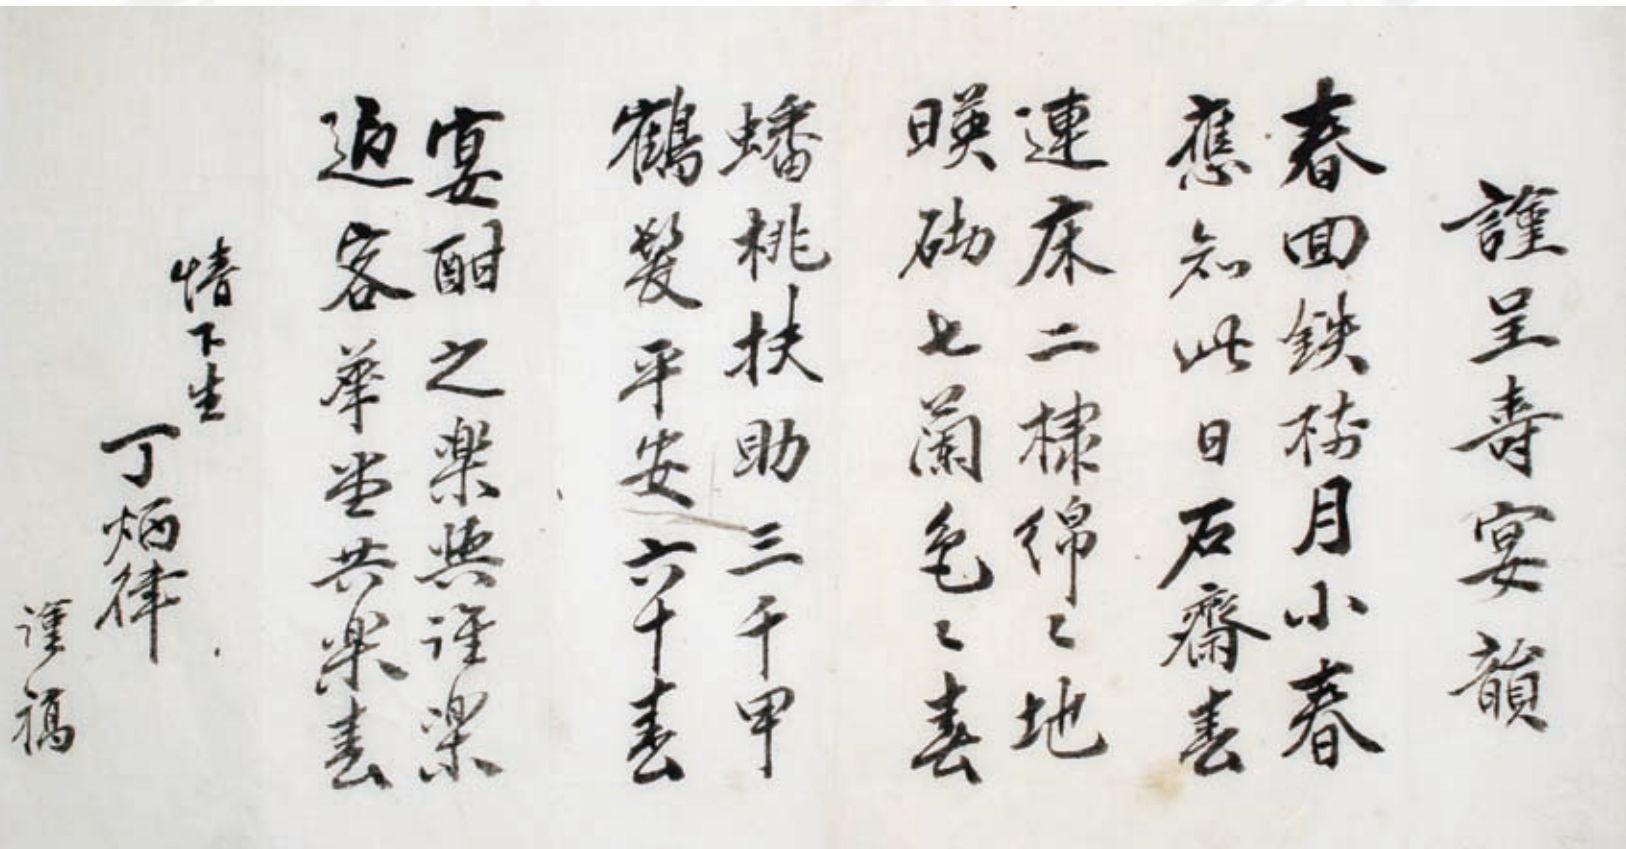 謹呈壽宴韻
春回鉄樹月小春
應知此日石齋春
連床二棣綿〻地
暎砌七蘭色〻春
蟠桃扶助三千甲
鶴髮平安六十春
宴酣之楽與誰楽
逅客華堂共楽春
情下生
丁炳律
謹稿